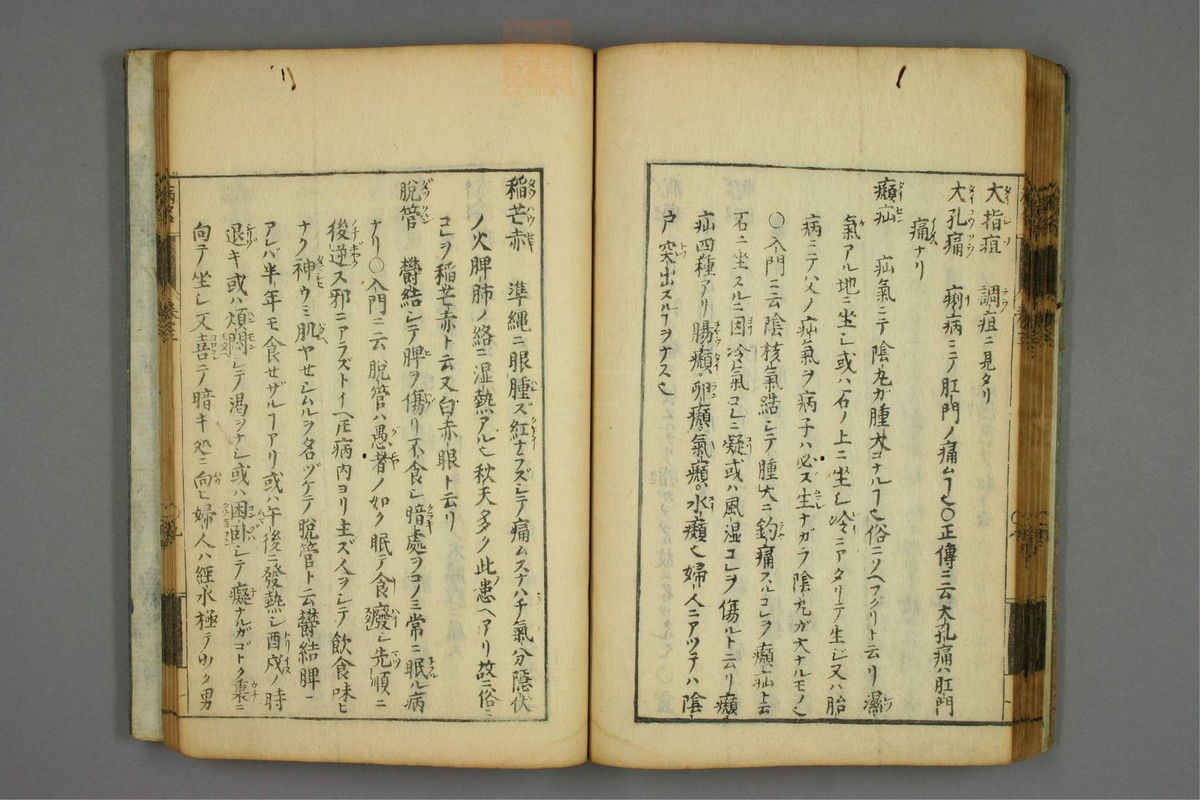 大指疽 調疽ニ見タリ
大孔痛 痢病ニテ肛門ノ痛ムヿ也〇正傳ニ云大孔痛ハ肛門
痛ナリ
㿗疝 疝氣ニテ陰丸ガ腫大コナルヿ也俗ニソヘフグリト云リ濕
氣アル地ニ坐シ或ハ石ノ上ニ坐シ冷ニアタリテ生ジ又ハ胎
病ニテ父ノ疝氣ヲ病子ハ必ズ生ナガラ陰丸ガ大ナルモノ也
〇入門ニ云陰核氣結シテ腫大ニ釣痛スルコレヲ㿗疝ト云
石ニ坐スルニ因冷氣コレニ凝或ハ風湿コレヲ傷ルト云リ㿗
疝四種アリ腸㿗卵㿗氣㿗水㿗也婦人ニアツテハ陰
戸突出スルヲナス也
稲芒赤 準縄ニ眼腫ズ紅ナラズシテ痛ムスナハチ氣分隱伏
ノ火脾肺ノ絡ニ湿熱アル也秋天多ク此患ヘアリ故ニ俗ニ
コレヲ稲芒赤ト云又白赤眼ト云リ
脱管 欝結シテ脾ヲ傷リ不食シ暗處ヲコノミ常ニ眠ル病
ナリ〇入門ニ云脱管ハ愚者ノ如ク眠テ食癈シ先順ニ
後逆ス邪ニアラズトイヘ𪜈病内ヨリ主ズ人ヲシテ飲食味ヒ
ナク神ウミ肌ヤセシムルヲ名ヅケテ脱管ト云欝結脾ニ
アレバ半年モ食セザルヿアリ或ハ午後ニ發熱シ酉戌ノ時
退キ或ハ煩悶シテ渇ヲナシ或ハ困臥シテ癡ナルガゴトク裏ニ
向テ坐シ又喜テ暗キ処ニ向ヒ婦人ハ經水極テ少ク男